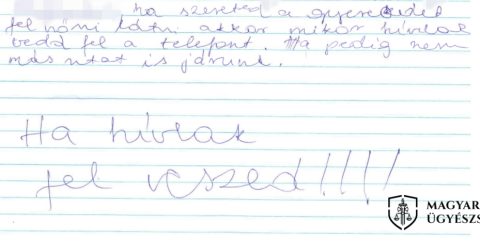 ha szereted a gyerekedet
fel nőni látni akkor mikor hívlak
vedd fel a telefont. Ha pedig nem
más utat is járunk.
Ha hívlak
fel veszed!!!!
MAGYAR
ÜGYÉSZS